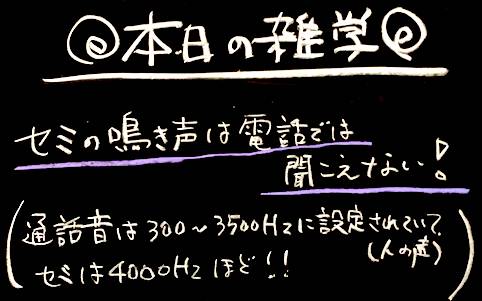 本日の雑学
セミの鳴き声は電話では
聞こえない!
(通話音は300～3500Hzに設定されていて、
(人の声)
セミは4000Hzほど!!)